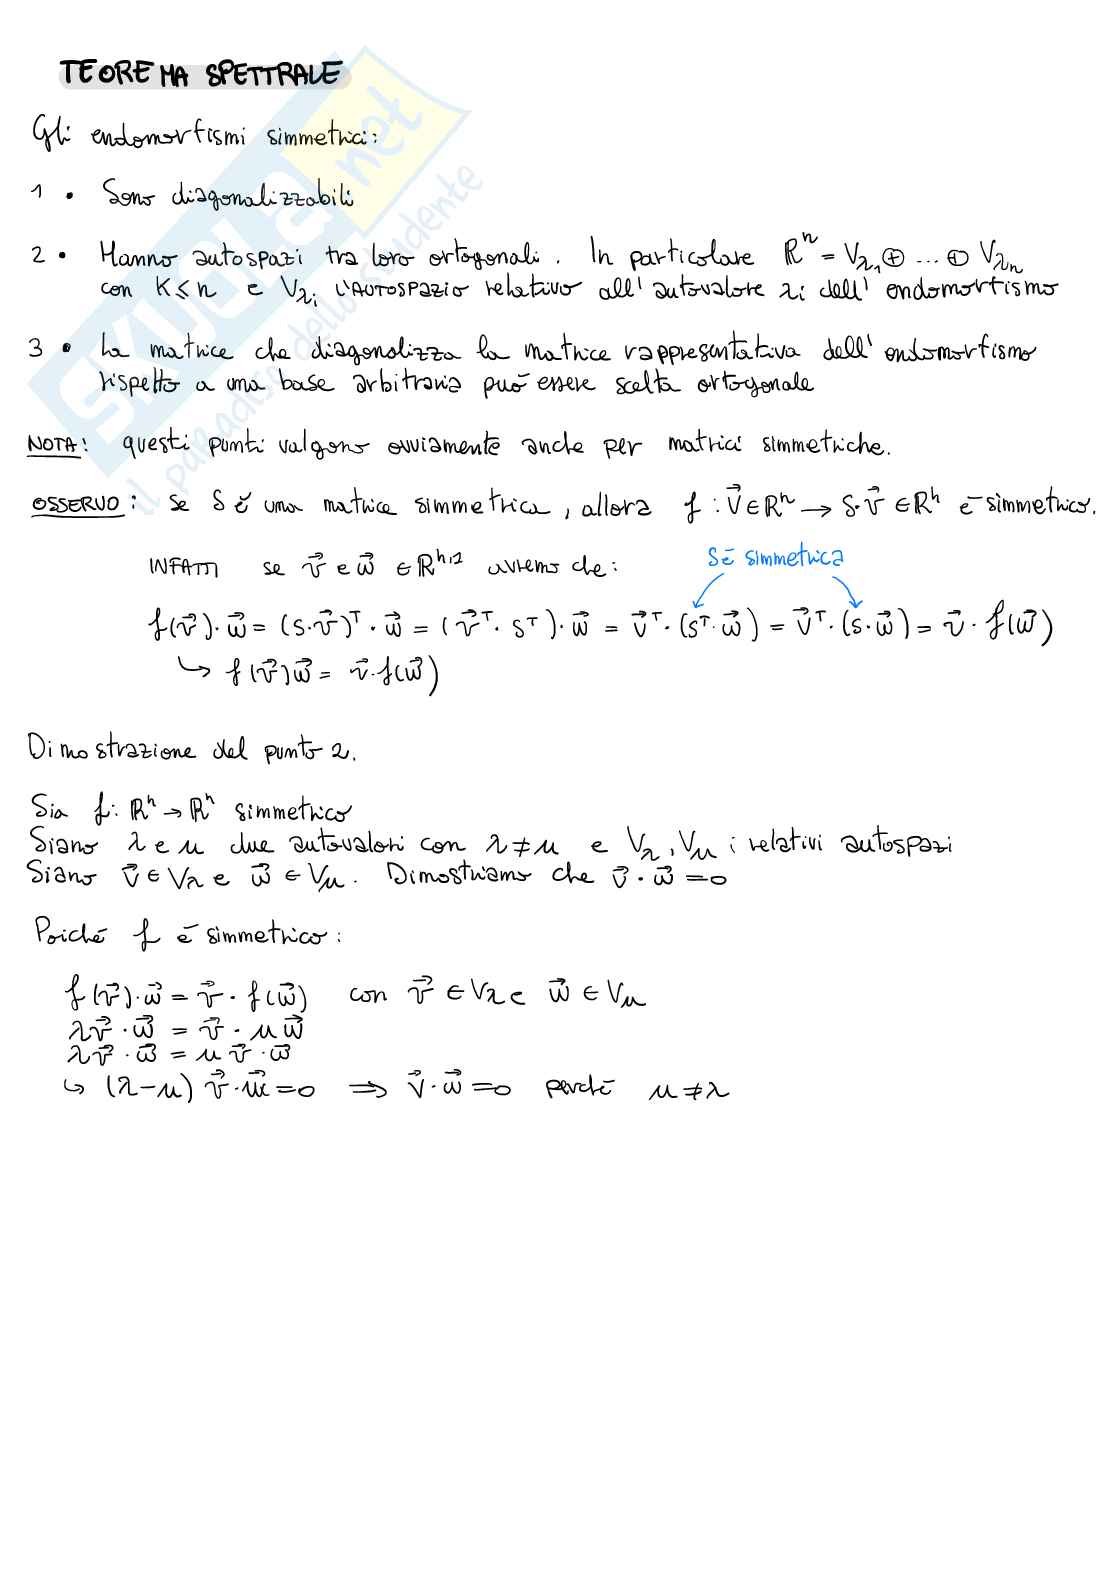 TEOREMA SPETTRALE
Gli endomorfismi simmetrici:
1 • Sono diagonalizzabili
2 • Hanno autospazi tra loro ortogonali. In particolare ℝⁿ = V_λ₁ ⊕ ... ⊕ V_λₙ
con K ≤ n e V_λᵢ L'AUTOSPAZIO relativo all'autovalore λi dell'endomorfismo
3 • La matrice che diagonalizza la matrice rappresentativa dell'endomorfismo
rispetto a una base arbitraria può essere scelta ortogonale
NOTA: questi punti valgono ovviamente anche per matrici simmetriche.
OSSERVO: se S è una matrice simmetrica, allora f: v⃗ ∈ ℝⁿ → S·v⃗ ∈ ℝⁿ è simmetrico.
S è simmetrica
INFATTI se v⃗ e w⃗ ∈ ℝⁿ'¹ avremo che:
f(v⃗)·w⃗ = (S·v⃗)ᵀ·w⃗ = (v⃗ᵀ·Sᵀ)·w⃗ = v⃗ᵀ·(Sᵀ·w⃗) = v⃗ᵀ·(S·w⃗) = v⃗·f(w⃗)
↪ f(v⃗)w⃗ = v⃗·f(w⃗)
Dimostrazione del punto 2.
Sia f: ℝⁿ → ℝⁿ simmetrico
Siano λ e μ due autovalori con λ ≠ μ e V_λ, V_μ i relativi autospazi
Siano v⃗ ∈ V_λ e w⃗ ∈ V_μ. Dimostriamo che v⃗·w⃗ = 0
Poiché f è simmetrico:
f(v⃗)·w⃗ = v⃗·f(w⃗) con v⃗ ∈ V_λ e w⃗ ∈ V_μ
λv⃗·w⃗ = v⃗·μw⃗
λv⃗·w⃗ = μv⃗·w⃗
↪ (λ-μ) v⃗·w⃗ = 0 ⟹ v⃗·w⃗ = 0 perché μ ≠ λ
SKUOLA.net
il paradiso dello studente